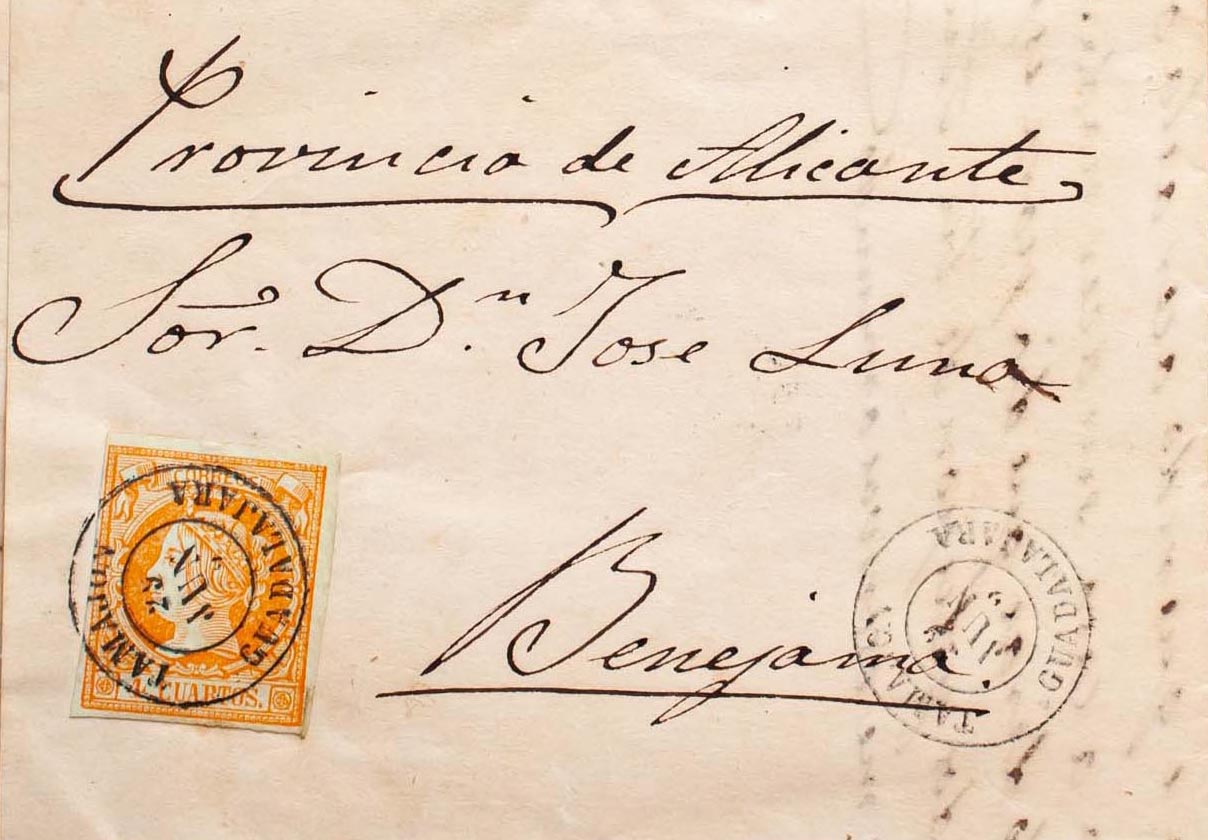 Provincia de Alicante
Sor. Dn. Jose Luna
Benejama.
CORREOS
4 CUARTOS.
TAMAJON
GUADALAJARA
JUN
TAMAJON
GUADALAJARA
JUN